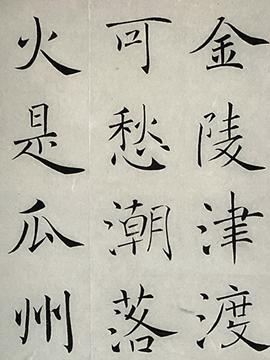 金陵津渡
可愁潮落
火是瓜州